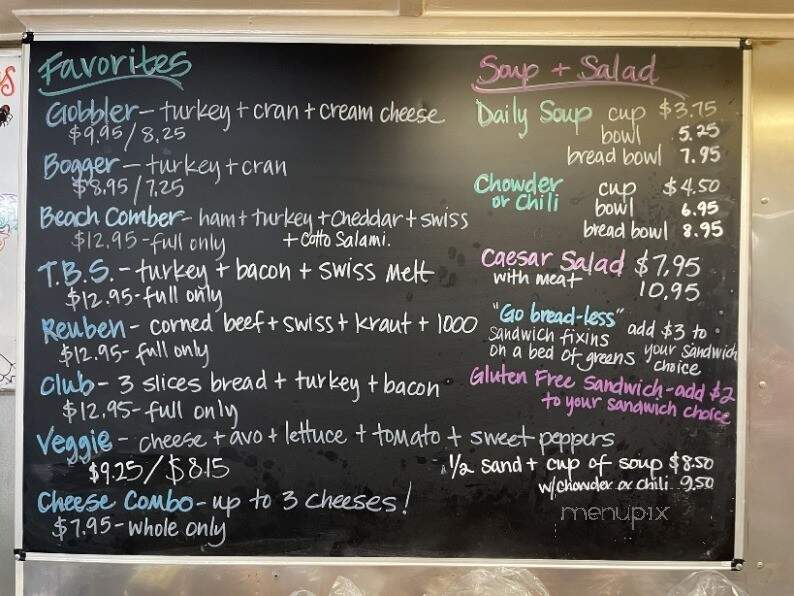 Favorites
Gobbler - turkey + cran + cream cheese
$9.95 / 8.25
Bogger - turkey + cran
$8.95 / 7.25
Beach Comber - ham + turkey + cheddar + swiss
$12.95 - full only + Cotto Salami.
T.B.S. - turkey + bacon + swiss melt
$12.95 - full only
Reuben - corned beef + swiss + kraut + 1000
$12.95 - full only
Club - 3 slices bread + turkey + bacon
$12.95 - full only
Veggie - cheese + avo + lettuce + tomato + sweet peppers
$9.25 / $8.15
Cheese Combo - up to 3 cheeses!
$7.95 - whole only
Soup + Salad
Daily Soup cup $3.75
bowl 5.25
bread bowl 7.95
Chowder cup $4.50
or Chili bowl 6.95
bread bowl 8.95
Caesar Salad $7.95
with meat 10.95
"Go bread-less" add $3 to
sandwich fixins your sandwich
on a bed of greens choice
Gluten Free Sandwich - add $2
to your sandwich choice
1/2 sand + cup of soup $8.50
w/chowder or chili 9.50
menupix